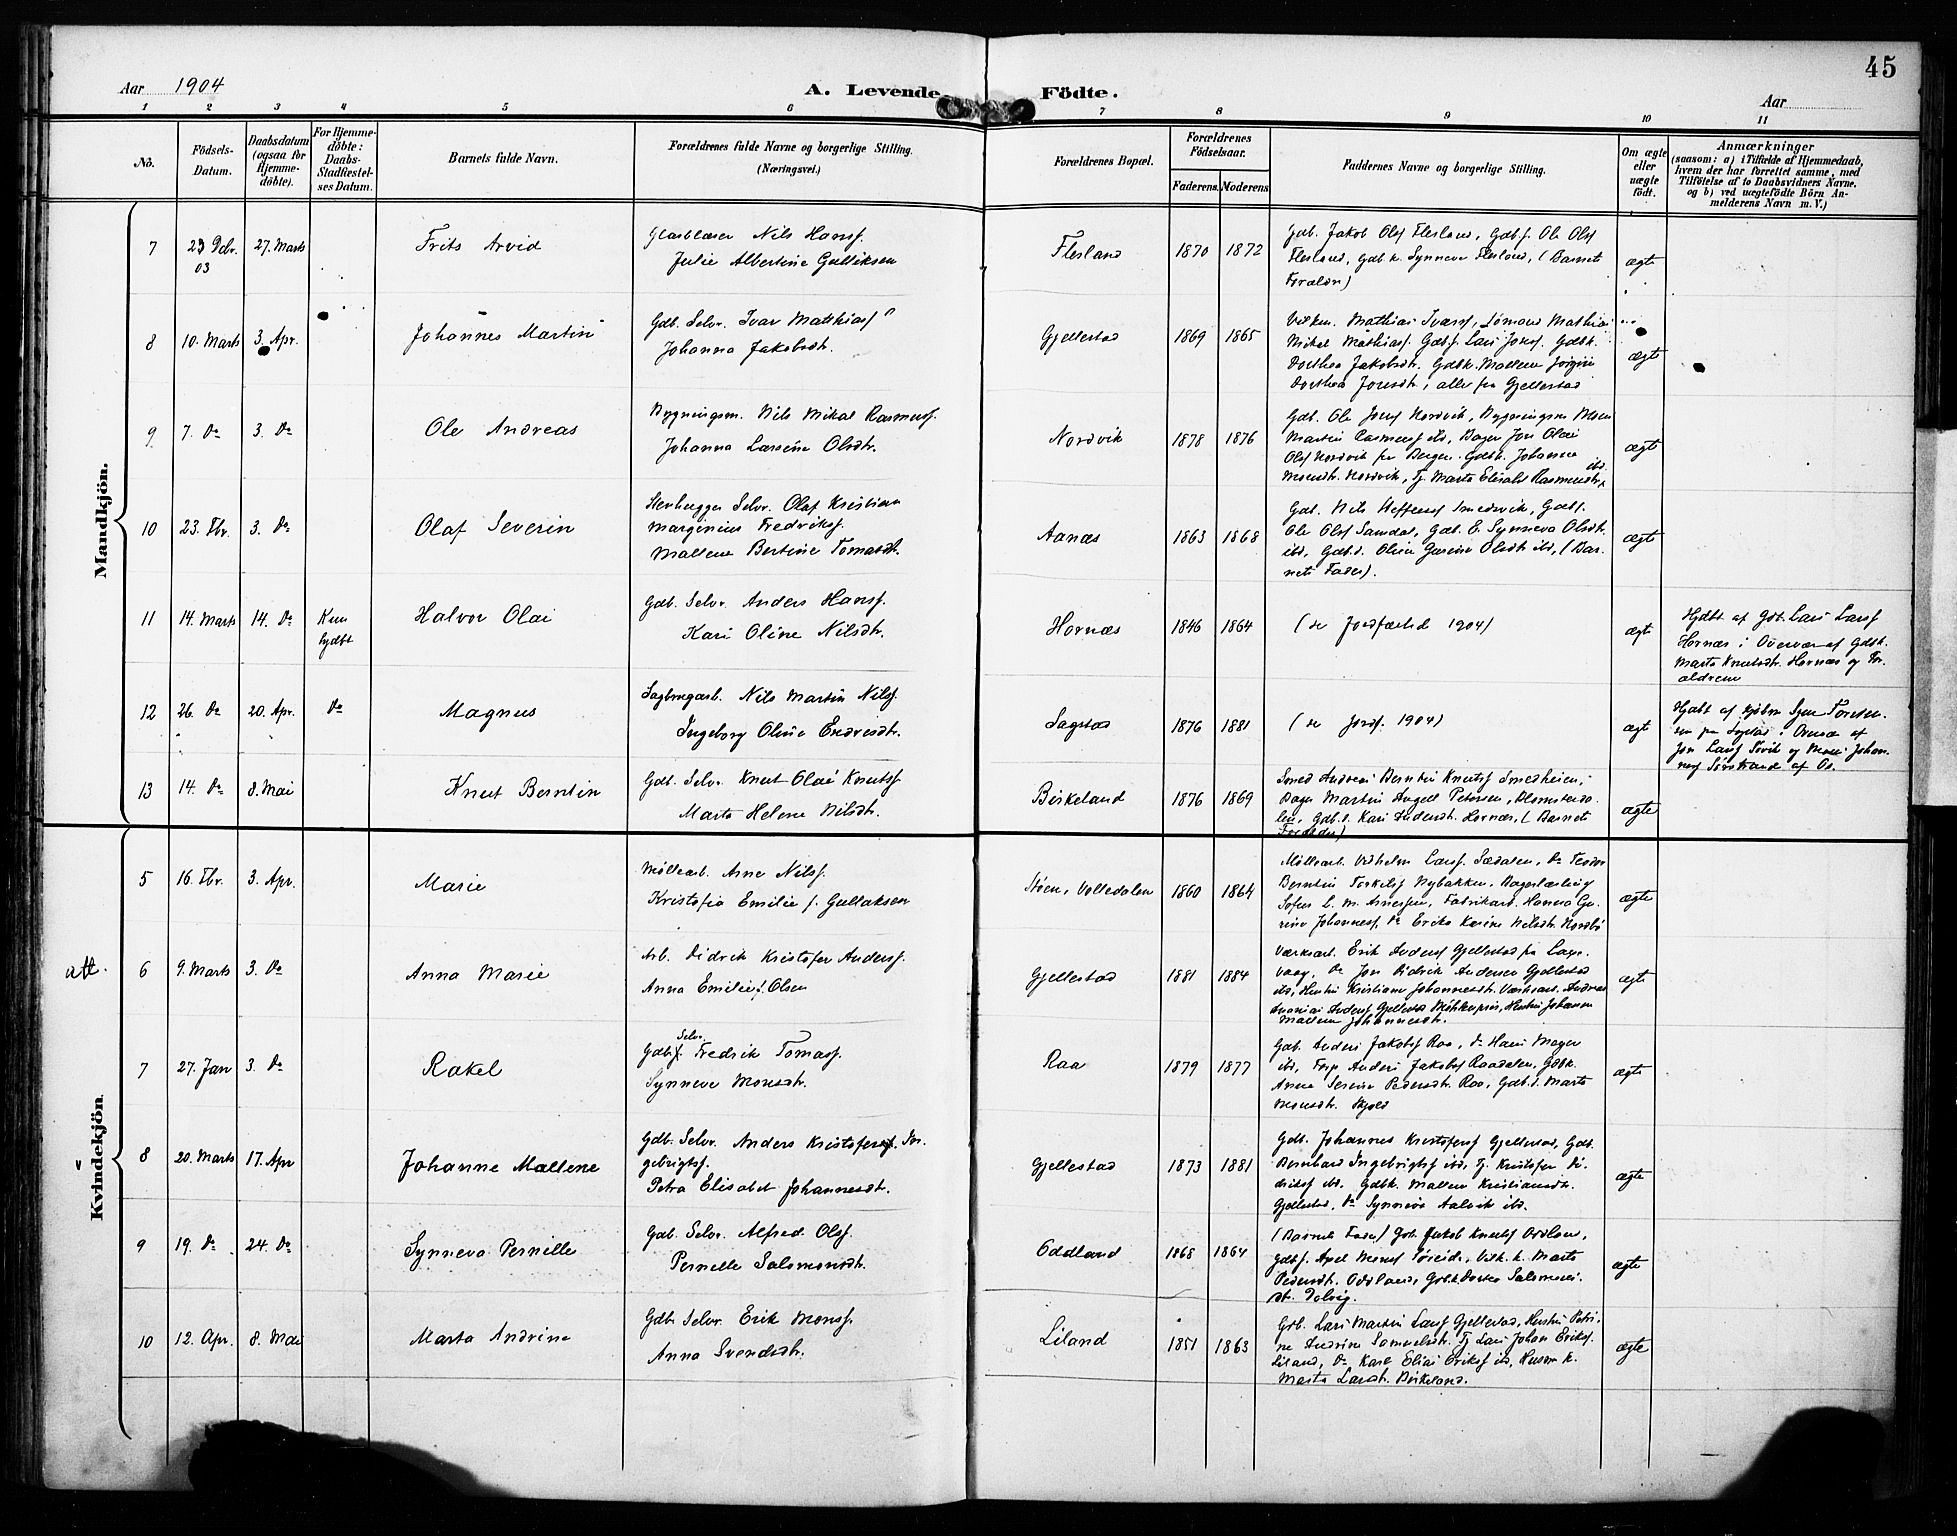 45
Aar 1904
A. Levende Födte.
Aar
1 2 3 4 5 6 7 8 9 10 11
No.
Födsels-Datum.
Daabsdatum (ogsaa for Hjemme-döbte).
For Hjemme-döbte: Daabs-Stadfæstel-ses Datum.
Barnets fulde Navn.
Forældrenes fulde Navne og borgerlige Stilling.
(Næringsvei.)
Forældrenes Bopæl.
Forældrenes Födselsaar.
Faderens. Moderens.
Faddernes Navne og borgerlige Stilling.
Om ægte eller uægte födt.
Anmærkninger
(saasom: a) i Tilfælde af Hjemmedaab,
hvem der har forrettet samme, med
Tilföielse af to Daabsvidners Navne,
og b) ved uægtefödte Börn An-
melderens Navn m. V.)
Mandkjön.
7 23 Debr. 03 27. Marts Frits Arvid
Glasblæser Nils Hansf.
Julie Albertine Gulliksen
Flesland 1870 1872
Gdb. Jakob Olsf Flesland, Gdbf. Ole Olsf
Flesland, Gdbk. Synneva Flesland, (Barnets
Forældre)
ægte
8 10. Marts 3. Apr. Johannes Martin
Gdb. Selv. Ivar Mathiasf
Johanna Jakobsdtr.
Gjellestad 1869 1865
Mathias Ivarsf,
Mikal Mathiasf. Gdbf. Lars Jonsf. Gdbk.
Dorthea Jakobsdtr. Gdbk. Mallene Jørgine
Dorthea Jonsdtr, alle fra Gjellestad
ægte
9 7. Do 3. Do Ole Andreas
Bygningsm. Nils Mikal Rasmusf.
Johanna Larsine Olsdtr.
Nordvik 1878 1876
Gdb. Ole Jonsf Nordvik,
Martin Rasmusf ibd, Bager Jon Olai
Olsf Nordvik fra Bergen. Gdbk. Johanna
Monsdtr. Nordvik, Tj. Marta Elisabet Rasmusdtr. ibd.
ægte
10 23. Fbr. 3. Do Olaf Severin
Stenhugger Selv. Olaf Kristian
Marginius Fredriksf.
Mallene Bertine Tomasdtr.
Aanæs 1863 1868
Gdb. Nils Steffensf Smedsvik, Gdbf.
Ole Olsf Samdal, Gdb. E. Synneva Olsdtr.
ibd, Gdb.d. Oline Gurine Olsdtr ibd, (Bar-
nets Fader).
ægte
11 14. Marts 14. Do Kun hjdbt Halvor Olai
Gdb. Selv. Anders Hansf.
Kari Oline Nilsdtr.
Hornæs 1846 1864
(se Jordfæsted 1904)
ægte
Hjdbt af Gdb. Lars Larsf
Hornæs i Overvær af Gdbk.
Marta Knutsdtr. Hornæs og For-
ældrene
12 26. Do 20. Apr. Do Magnus
Sagbrugarb. Nils Martin Nilsf.
Ingeborg Oline Endresdtr.
Sagstad 1876 1881
(se Jordf. 1904)
ægte
Hjdbt af
Jon Larsf og Johan-
13 14. Do 8. Mai Knut Berntin
Gdb. Selv. Knut Olai Knutsf.
Marta Helene Nilsdtr.
Birkeland 1876 1869
Smed Andreas Berntin Knutsf Smedheien,
Bager Martin Angell Petersen, Blomsterda-
len, Gdb.d. Kari Andersdtr. Hornæs, (Barnets
Forældre)
ægte
Kvindekjön
5 16. Fbr. 3. Apr. Marie
Møllearb. Arne Nilsf.
Kristofia Emilie f. Gullaksen
Støen, Volledalen 1860 1864
Møllearb. Vilhelm Larsf. Sædalen, Do Teodor
Berntin Torkelsf Nybakken, Bagerlærling
Sofus L. M. Arnesen, Fabrikarb. Hanna Gu-
rine Johannesf, Do Erika Karine Nilsdtr. Nordbø
ægte
att.
6 9. Marts 3. Do Anna Marie
Arb. Didrik Kristofer Andersf.
Anna Emilie f. Olsen
Gjellestad 1881 1884
Værksarb. Erik Andersf Gjellestad fra Laxe-
vaag, Do Jon Didrik Andersen Gjellestad
ibd, Hustru Kristiane Johannesdtr. Værksarb. Andreas
Ananias Andersf Gjellestad Møhlenpris, Hustru Johanna
Mallene Johannesdtr.
ægte
7 27. Jan 3. Do Rakel
Gdbf. Selv. Fredrik Tomasf.
Synneve Monsdtr.
Raa 1879 1877
Gdb. Anders Jakobsf Raa, Do Hans Mager
ibd, Forp. Anders Jakobsf Raadalen, Gdbk.
Anna Serine Pedersdtr. Raa, Gdb.d. Marta
Monsdtr. Skjold
ægte
8 20. Marts 17. Apr Johanne Mallene
Gdb. Selv. Anders Kristofersf. In-
gebrigtsf.
Petra Elisabet Johannesdtr.
Gjellestad 1873 1881
Gdb. Johannes Kristofersf Gjellestad, Gdb.
Bernhard Ingebrigtsf ibd, Tj. Kristofer Di-
driksf ibd. Gdbk. Mallene Kristiansdtr.
Gjellestad, Do Synneva Aalvik ibd.
ægte
9 19. Do 24. Do Synneva Pernille
Gdb. Selv. Alfred Olsf.
Pernille Salomonsdtr.
Oddland 1868 1864
(Barnets Fader) Gdb. Jakob Knutsf Oddland,
Gdbf. Axel Monsf Søreide, Vilk. k. Marta
Pedersdtr. Oddland, Gdbk. Dortea Salomons-
dtr. Dolvig.
ægte
10 12. Apr. 8. Mai Marta Andrine
Gdb. Selv. Erik Monsf.
Anna Svendsdtr.
Liland 1851 1863
Gdb. Lars Martin Larsf Gjellestad, Hustru Petri-
ne Andrine Samuelsdtr. Tj. Lars Johan Eriksf.
Liland, Do Karl Elias Eriksf ibd, Husm. k.
Marta Larsdtr. Birkeland.
ægte